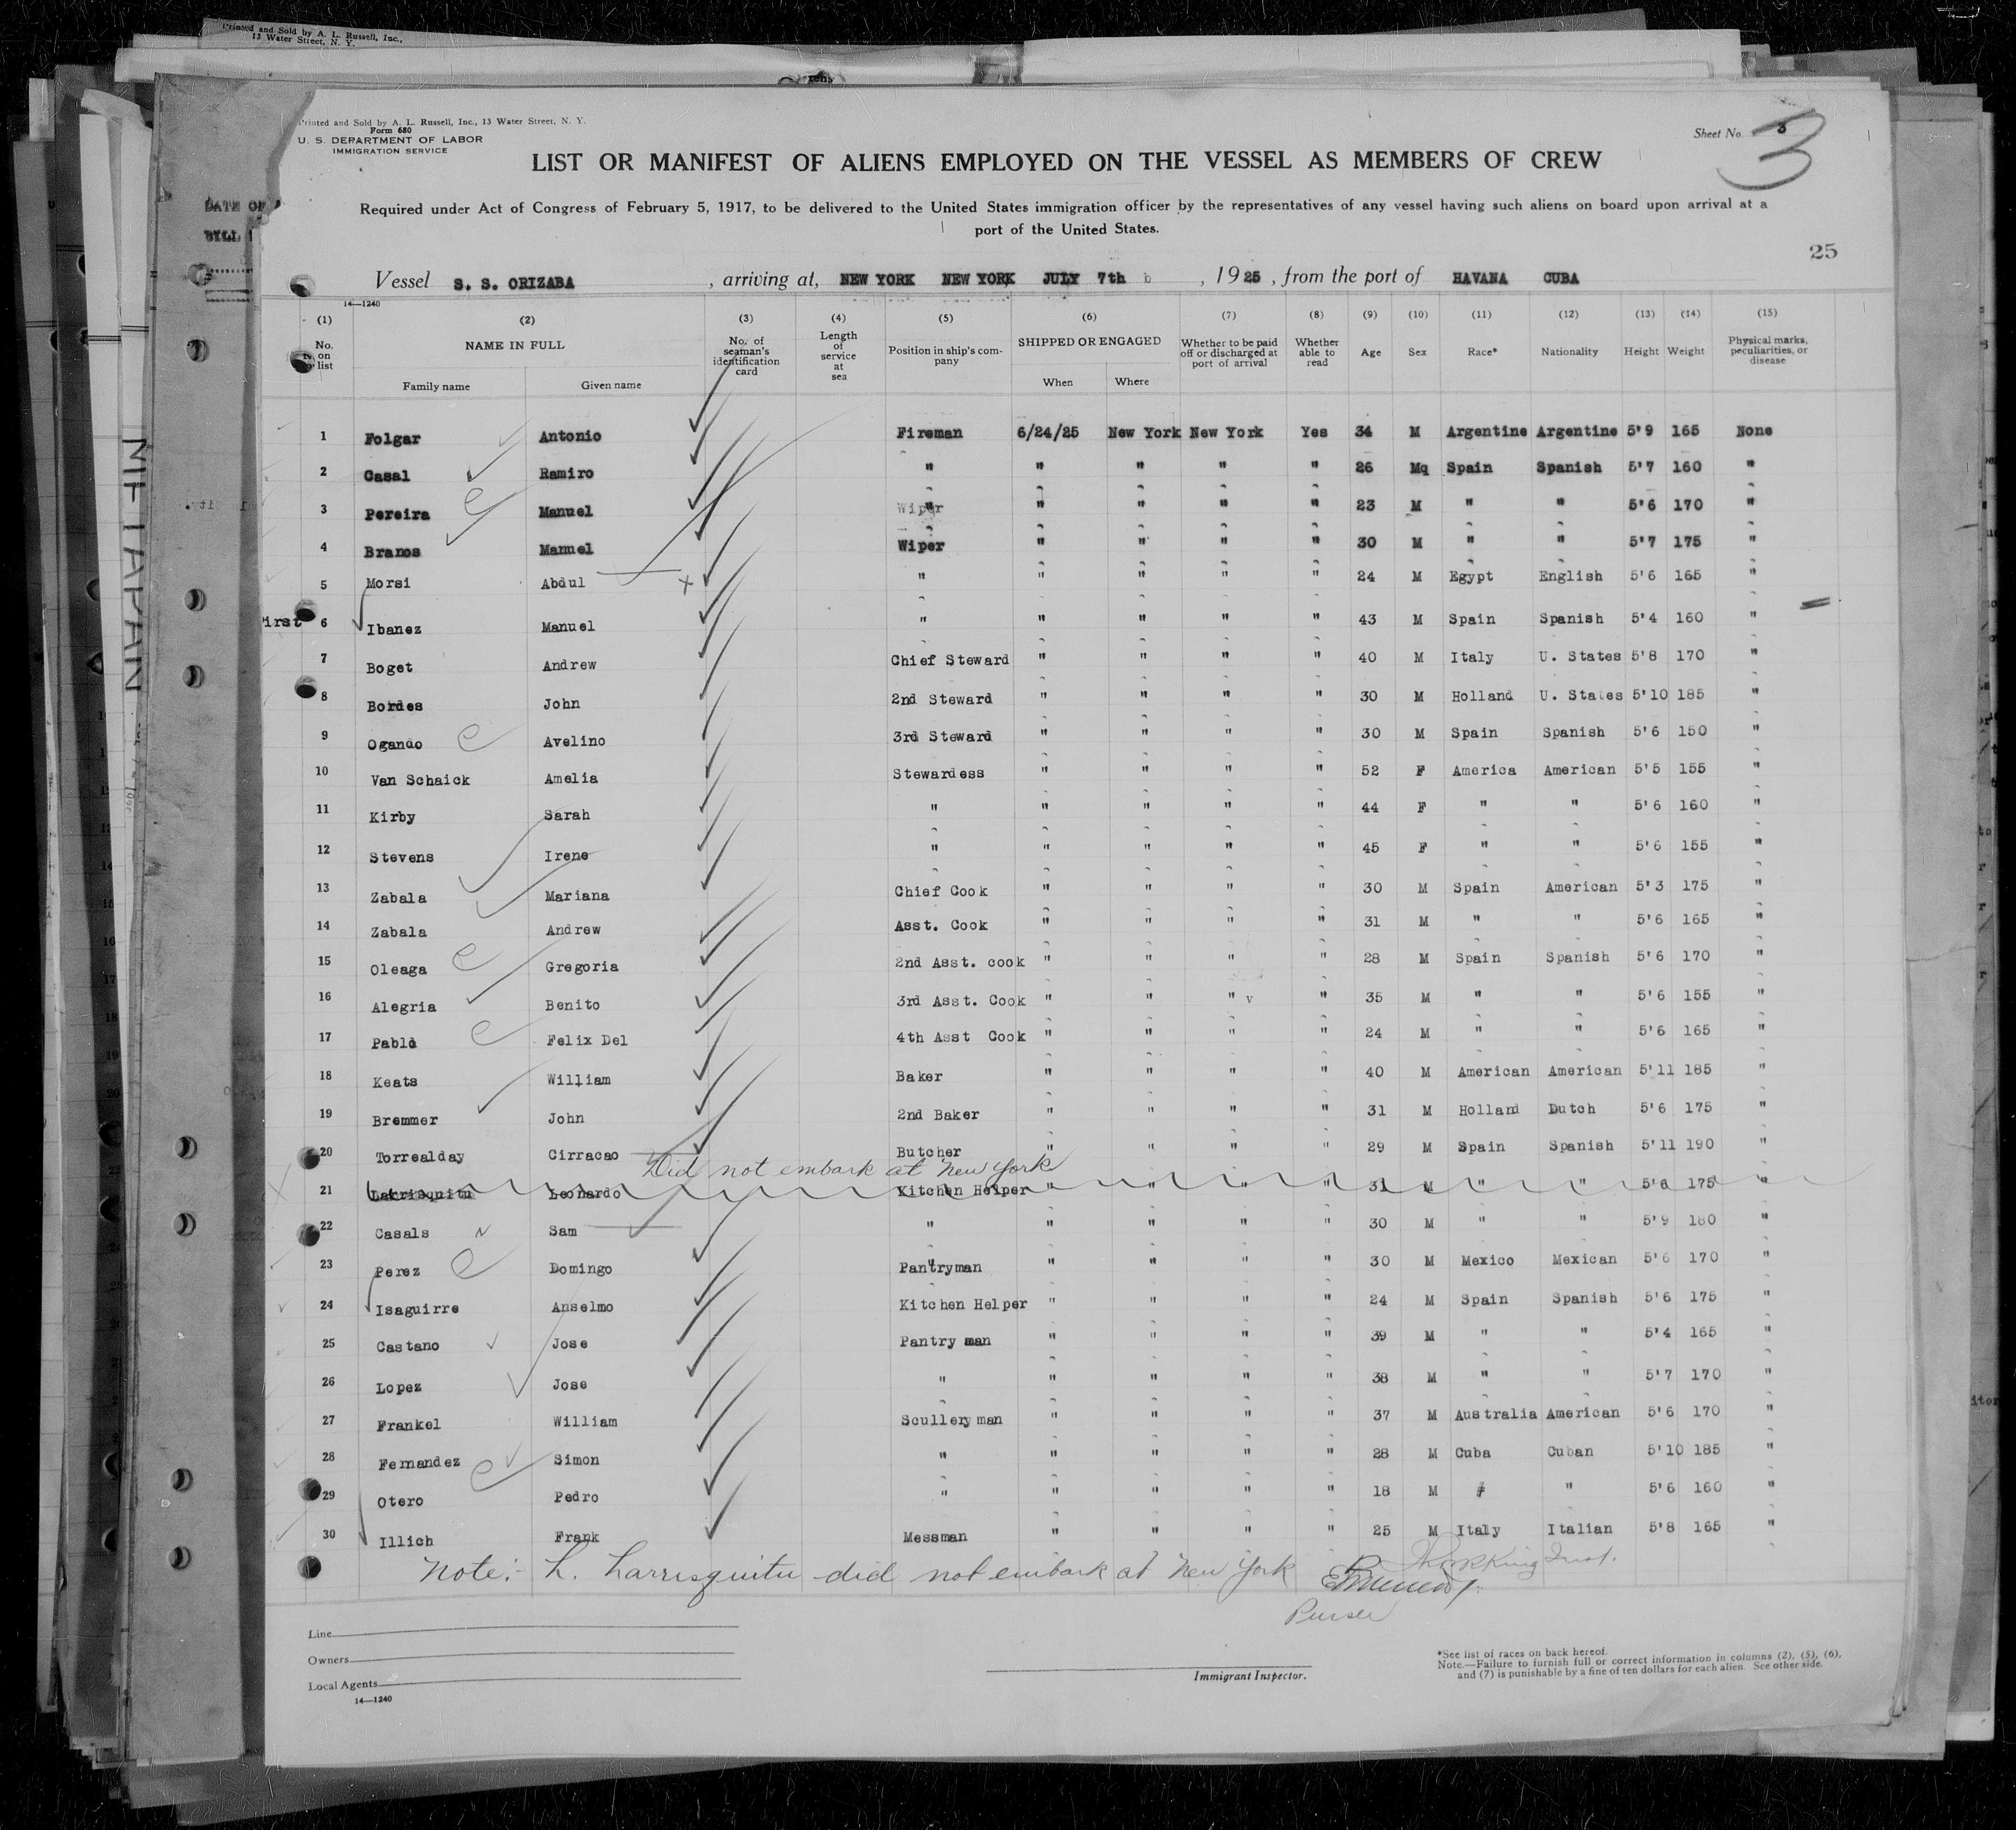 Printed and Sold by A. L. Russell, Inc.,
13 Water Street, N. Y.
Printed and Sold by A. L. Russell, Inc., 13 Water Street, N. Y.
Form 680
U. S. DEPARTMENT OF LABOR
IMMIGRATION SERVICE
Sheet No. 3
3
LIST OR MANIFEST OF ALIENS EMPLOYED ON THE VESSEL AS MEMBERS OF CREW
Required under Act of Congress of February 5, 1917, to be delivered to the United States immigration officer by the representatives of any vessel having such aliens on board upon arrival at a
port of the United States.
25
Vessel S. S. ORIZABA , arriving at, NEW YORK NEW YORK JULY 7th , 1925 , from the port of HAVANA CUBA
14—1240
(1) (2) (3) (4) (5) (6) (7) (8) (9) (10) (11) (12) (13) (14) (15)
No. on list NAME IN FULL Family name Given name No. of seaman's identification card Length of service at sea Position in ship's company SHIPPED OR ENGAGED When Where Whether to be paid off or discharged at port of arrival Whether able to read Age Sex Race* Nationality Height Weight Physical marks, peculiarities, or disease
1 Folgar Antonio Fireman 6/24/25 New York New York Yes 34 M Argentine Argentine 5'9 165 None
2 Casal Ramiro " " " " " 26 Mq Spain Spanish 5'7 160 "
3 Pereira Manuel Wiper " " " " 23 M " " 5'6 170 "
4 Branos Manuel Wiper " " " " 30 M " " 5'7 175 "
5 Morsi Abdul " " " " " 24 M Egypt English 5'6 165 "
6 Ibanez Manuel " " " " " 43 M Spain Spanish 5'4 160 "
7 Boget Andrew Chief Steward " " " " 40 M Italy U. States 5'8 170 "
8 Bordes John 2nd Steward " " " " 30 M Holland U. States 5'10 185 "
9 Ogando Avelino 3rd Steward " " " " 30 M Spain Spanish 5'6 150 "
10 Van Schaick Amelia Stewardess " " " " 52 F America American 5'5 155 "
11 Kirby Sarah " " " " " 44 F " " 5'6 160 "
12 Stevens Irene " " " " " 45 F " " 5'6 155 "
13 Zabala Mariana Chief Cook " " " " 30 M Spain American 5'3 175 "
14 Zabala Andrew Asst. Cook " " " " 31 M " " 5'6 165 "
15 Oleaga Gregoria 2nd Asst. cook " " " " 28 M Spain Spanish 5'6 170 "
16 Alegria Benito 3rd Asst. Cook " " " v " 35 M " " 5'6 155 "
17 Pablo Felix Del 4th Asst Cook " " " " 24 M " " 5'6 165 "
18 Keats William Baker " " " " 40 M American American 5'11 185 "
19 Bremmer John 2nd Baker " " " " 31 M Holland Dutch 5'6 175 "
20 Torrealday Cirracao Butcher " " " " 29 M Spain Spanish 5'11 190 "
Did not embark at New York
21 Larrisquitu Leonardo Kitchen Helper " " " " 31 M " " 5'8 175 "
22 Casals Sam " " " " " 30 M " " 5'9 180 "
23 Perez Domingo Pantryman " " " " 30 M Mexico Mexican 5'6 170 "
24 Isaguirre Anselmo Kitchen Helper " " " " 24 M Spain Spanish 5'6 175 "
25 Castano Jose Pantry man " " " " 39 M " " 5'4 165 "
26 Lopez Jose " " " " " 38 M " " 5'7 170 "
27 Frankel William Scullery man " " " " 37 M Australia American 5'6 170 "
28 Fernandez Simon " " " " " 28 M Cuba Cuban 5'10 185 "
29 Otero Pedro " " " " " 18 M " " 5'6 160 "
30 Illich Frank Messman " " " " 25 M Italy Italian 5'8 165 "
Note:- L. Larrisquitu did not embark at New York
Purser
Line
Owners
Local Agents
14—1240
Immigrant Inspector.
*See list of races on back hereof.
Note.—Failure to furnish full or correct information in columns (2), (5), (6),
and (7) is punishable by a fine of ten dollars for each alien. See other side.